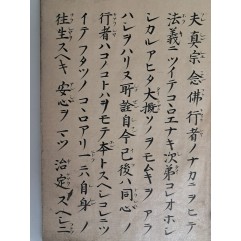 夫真宗念佛行者ノナカニヲヒテ
法義ニツイテコヽロエナキ次第コレオホシ
シカルアヒタ大概ソノヲモムキヲアラ
ハシヲハリヌ所詮自今已後ハ同心ノ
行者ハコノコトハヲモテ本トスヘシコレニツ
イテフタツノコヽロアリ一ニハ自身ノ
往生スヘキ安心ヲマツ治定スヘシ二